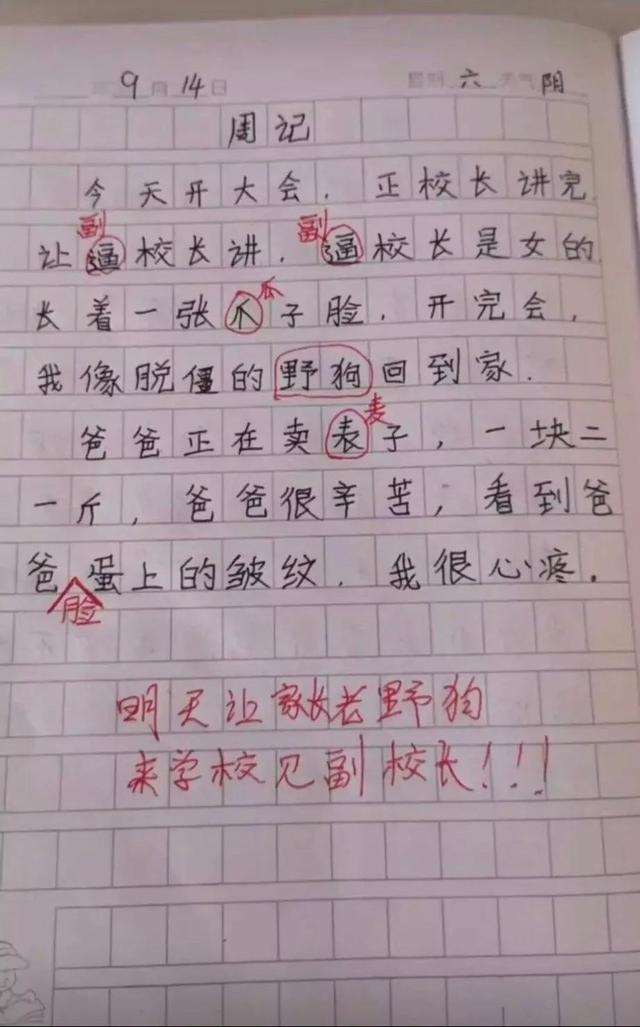 年 9 月 14 日 星期 六 天气 阴
周记
今天开大会．正校长讲完
副 副
让逼校长讲．逼校长是女的
瓜
长着一张爪子脸．开完会，
我像脱僵的野狗回到家．
麦
爸爸正在卖表子，一块二
一斤，爸爸很辛苦，看到爸
爸蛋上的皱纹．我很心疼．
脸
明天让家长老野狗
来学校见副校长！！！